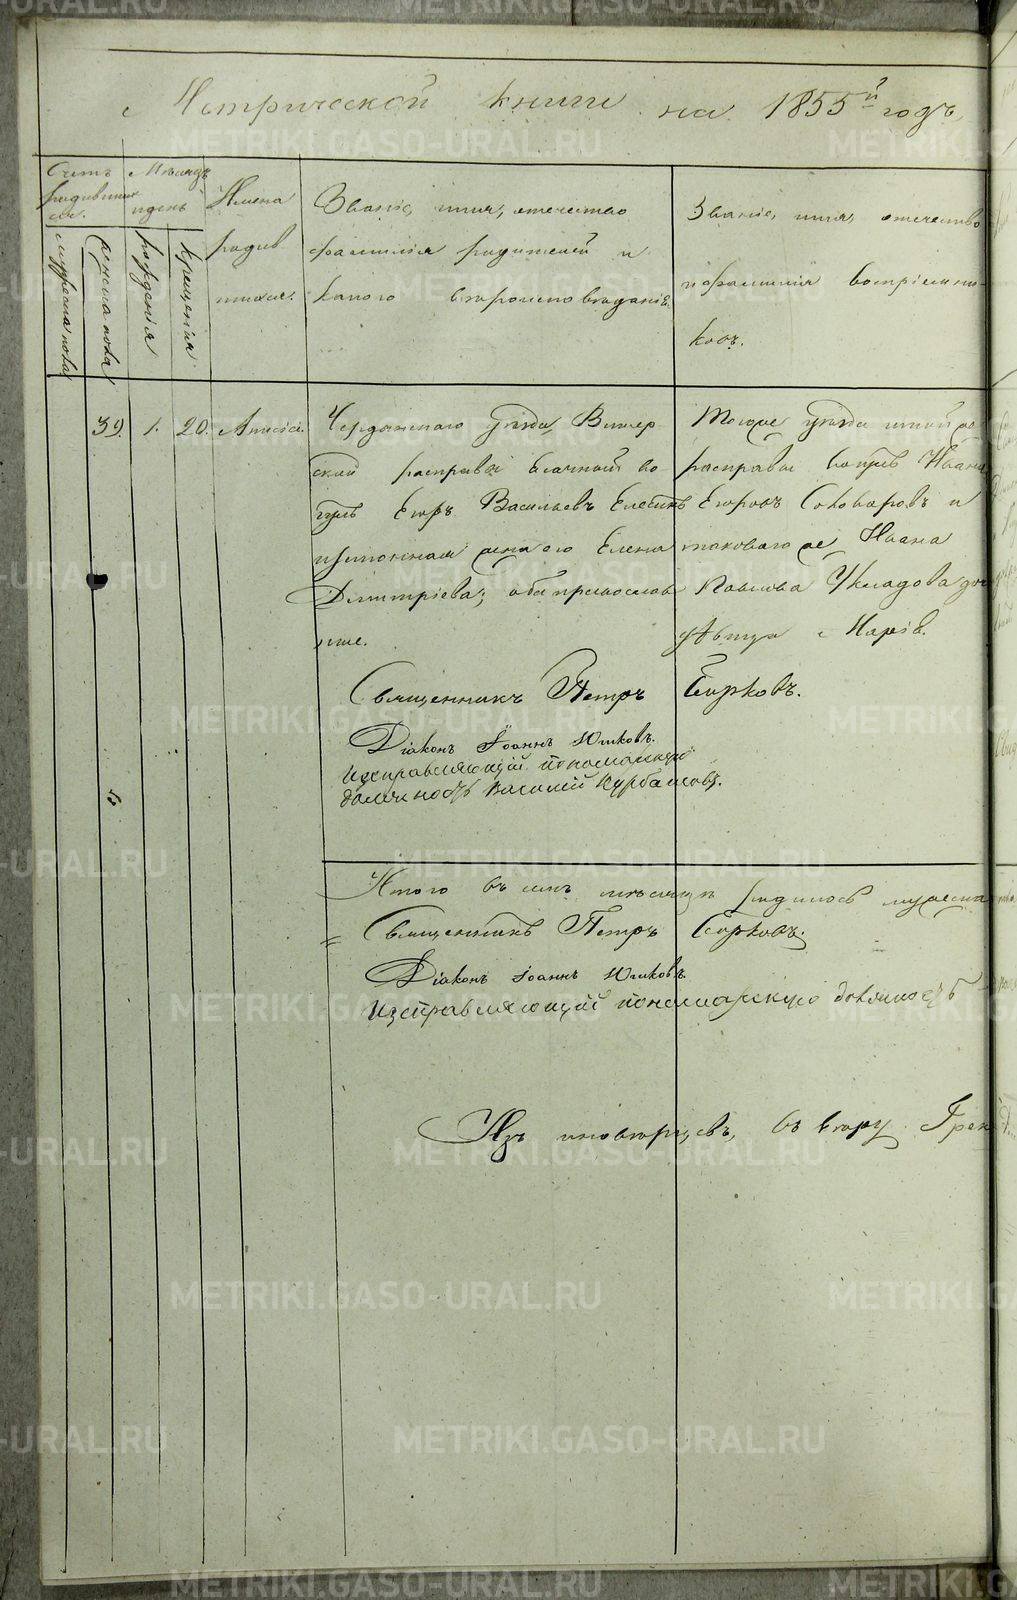 Метрической книги на 1855й годъ
Счетъ родившихся.
Мѣсяцъ и день
Имена родившихся.
Званіе, имя, отечество
фамилія родителей и
какого вѣроисповѣданія.
Званіе, имя, отечество
и фамилія воспріемни-
ковъ.
мужеска пола
женска пола
рожденія
крещенія
39. 1. 20. Анисія.
Чердынскаго уѣзда Вишер
ской расправы
Егоръ Васильевъ
и законная жена его Елена
Димитріева; оба православ
ные.
Тогоже уѣзда
расправы Ивана
Егоровъ и
таковагоже Ивана
Павлова дочь
дѣвица Марія.
Священникъ Петръ Бирковъ.
Діаконъ Іоаннъ Юшковъ.
Исправляющій пономарскую
должность Василій Курбатовъ.
Итого въ семъ мѣсяцѣ родилось мужеска
Священникъ Петръ Бирковъ.
Діаконъ Іоаннъ Юшковъ.
Исправляющій пономарскую должность
Изъ иновѣрцевъ, въ вѣру Грек
METRIKI.GASO-URAL.RU